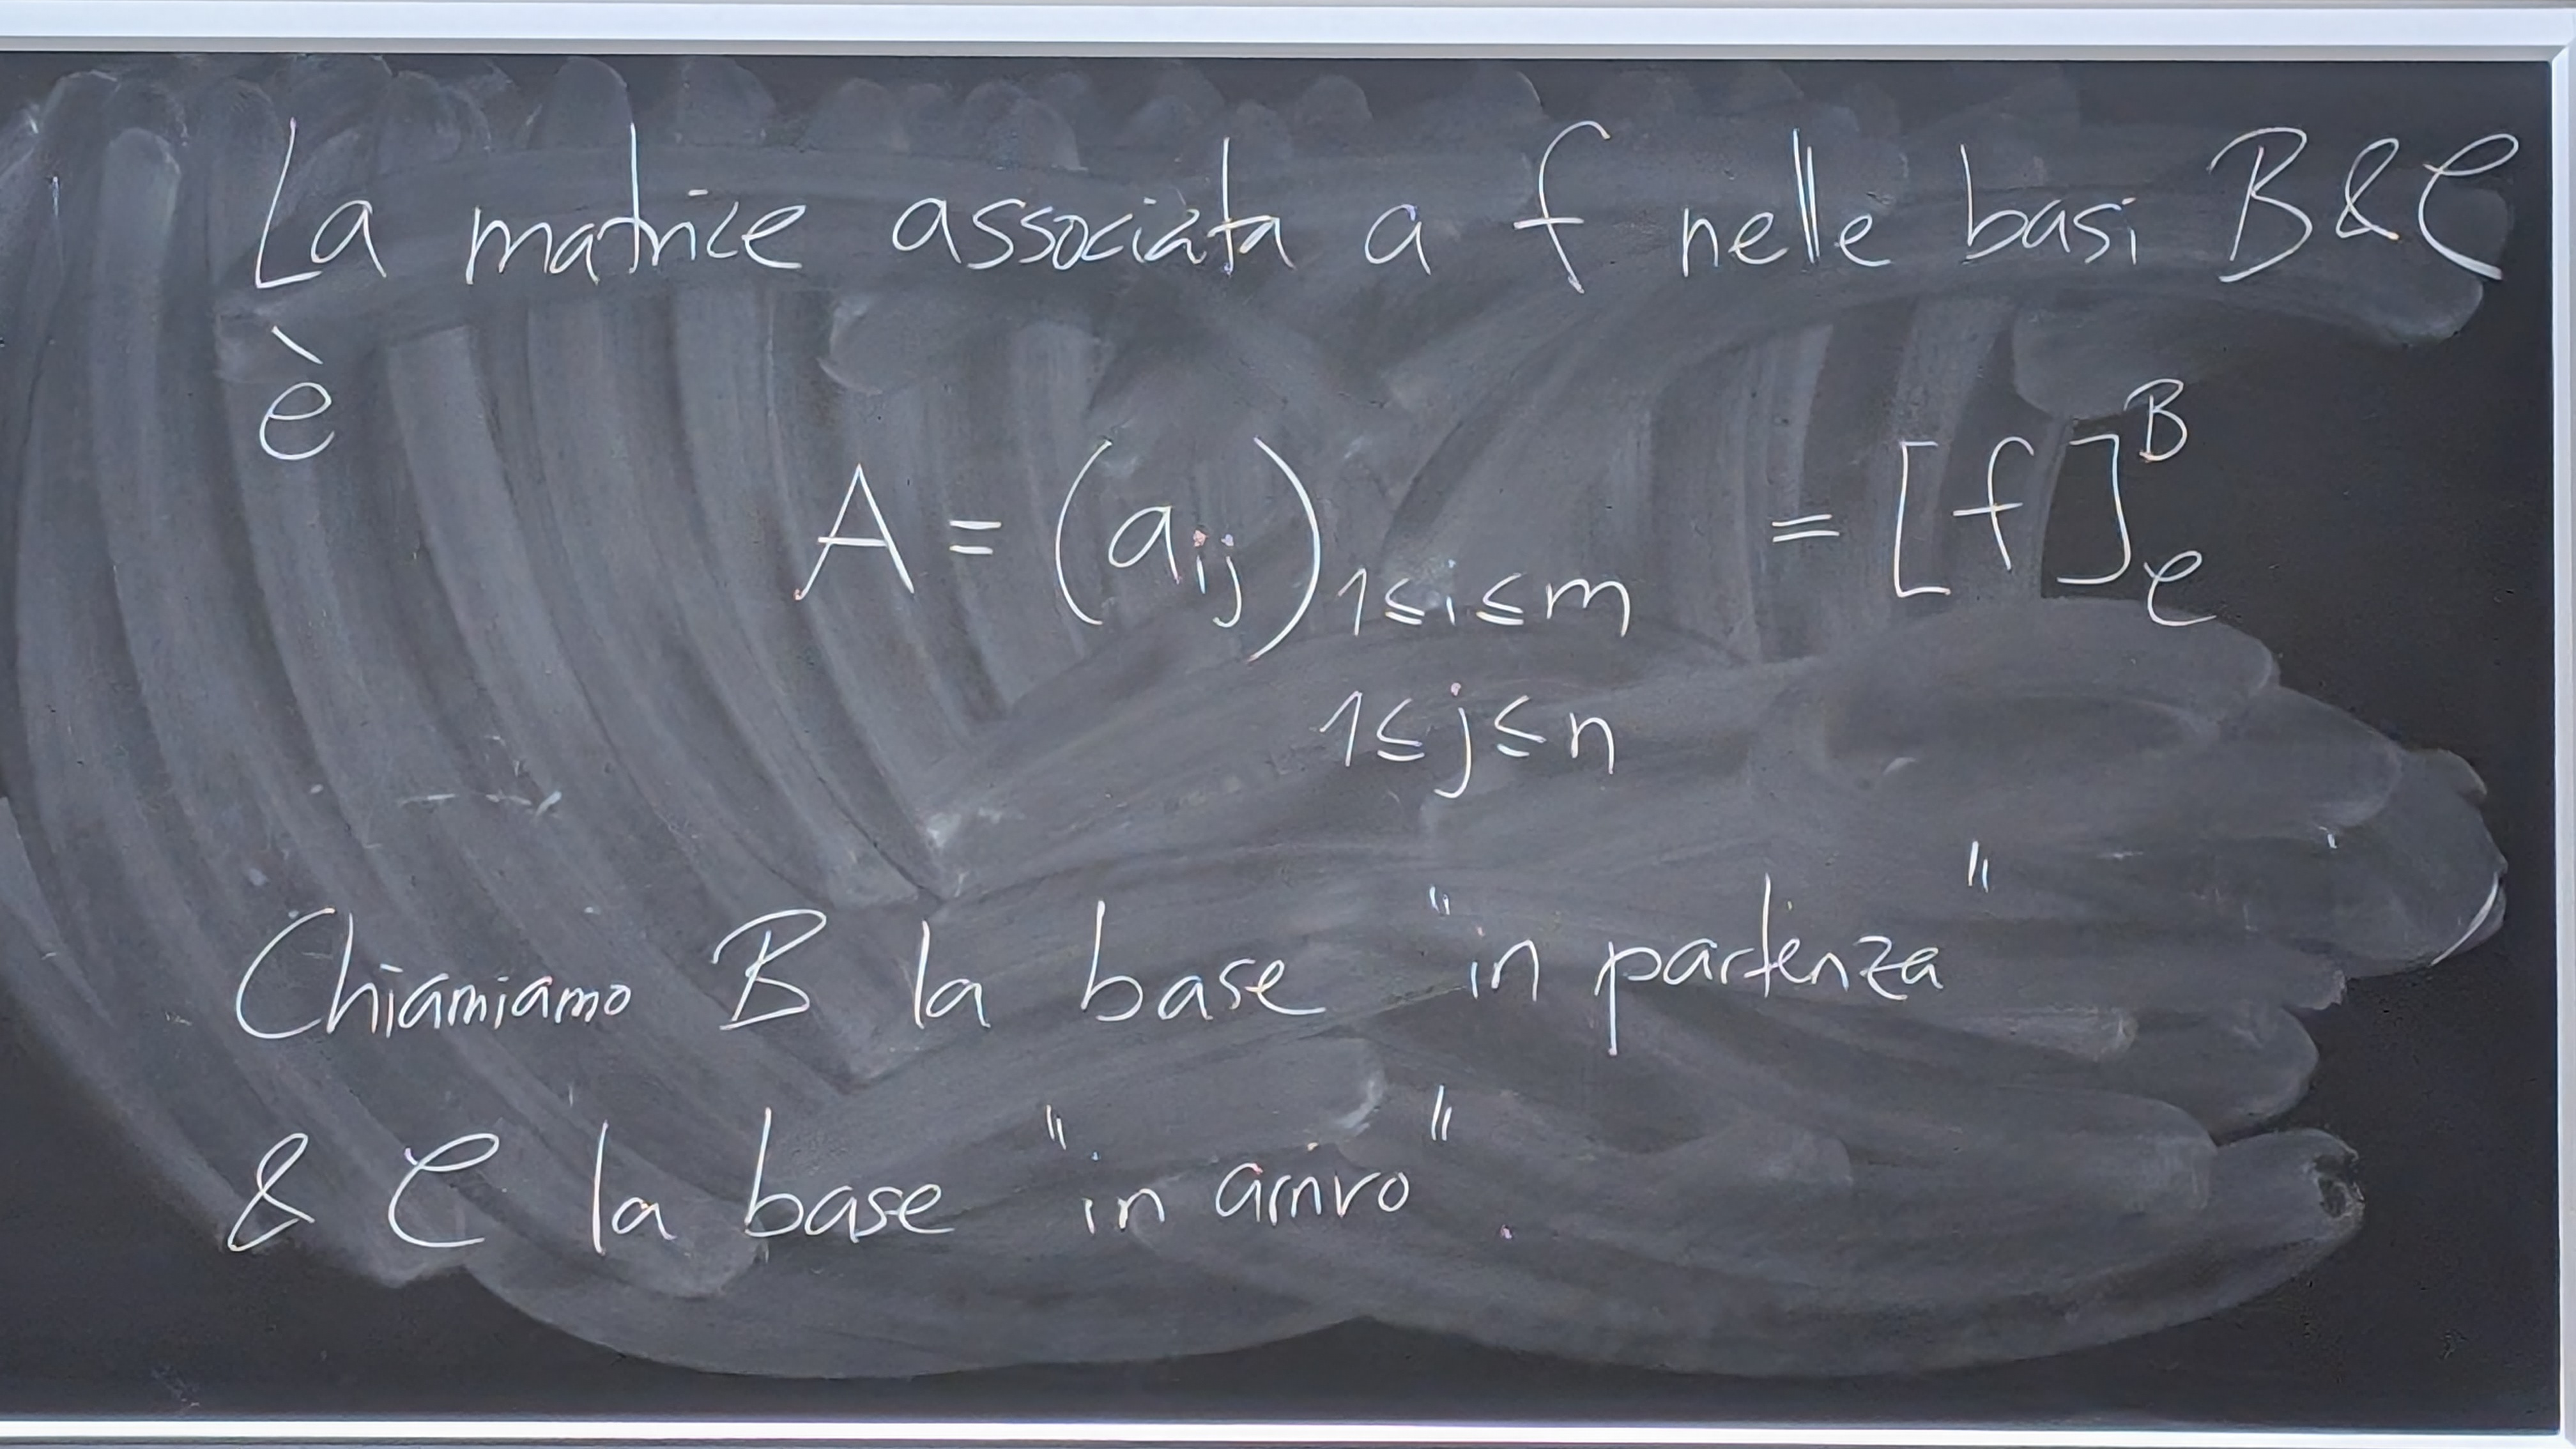 La matrice associata a f nelle basi B & C
è
A = (a_{ij})_{1≤i≤m = [f]^B_C
1≤j≤n}
Chiamiamo B la base "in partenza"
& C la base "in arrivo".